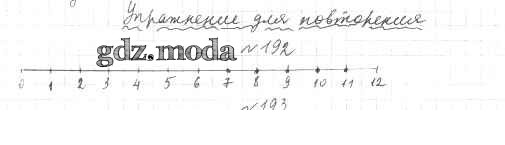 Упражнение для повторения
gdz.moda № 192
0 1 2 3 4 5 6 7 8 9 10 11 12
№ 193